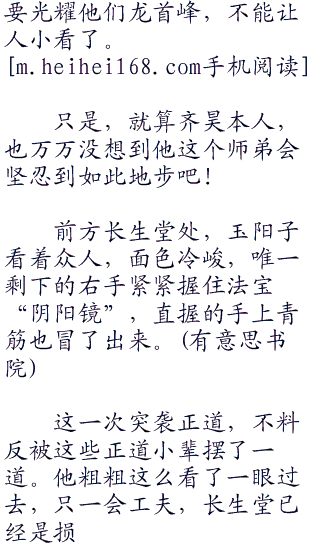 要光耀他们龙首峰，不能让
人小看了。
[m.heihei168.com手机阅读]
只是，就算齐昊本人，
也万万没想到他这个师弟会
坚忍到如此地步吧！
前方长生堂处，玉阳子
看着众人，面色冷峻，唯一
剩下的右手紧紧握住法宝
“阴阳镜”，直握的手上青
筋也冒了出来。(有意思书
院)
这一次突袭正道，不料
反被这些正道小辈摆了一
道。他粗粗这么看了一眼过
去，只一会工夫，长生堂已
经是损